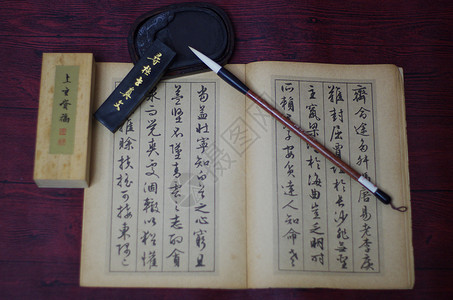 齊命途多舛唐易老李廣
難封屈賈誼於長沙非無聖
主竄梁於海曲豈乏明時
所賴君子安貧達人知命老
當益壯寧知白首之心窮且
益堅不墜青雲之志酌貪
泉而覺爽處涸轍以猶懽
雖賒扶搖可接東隅已